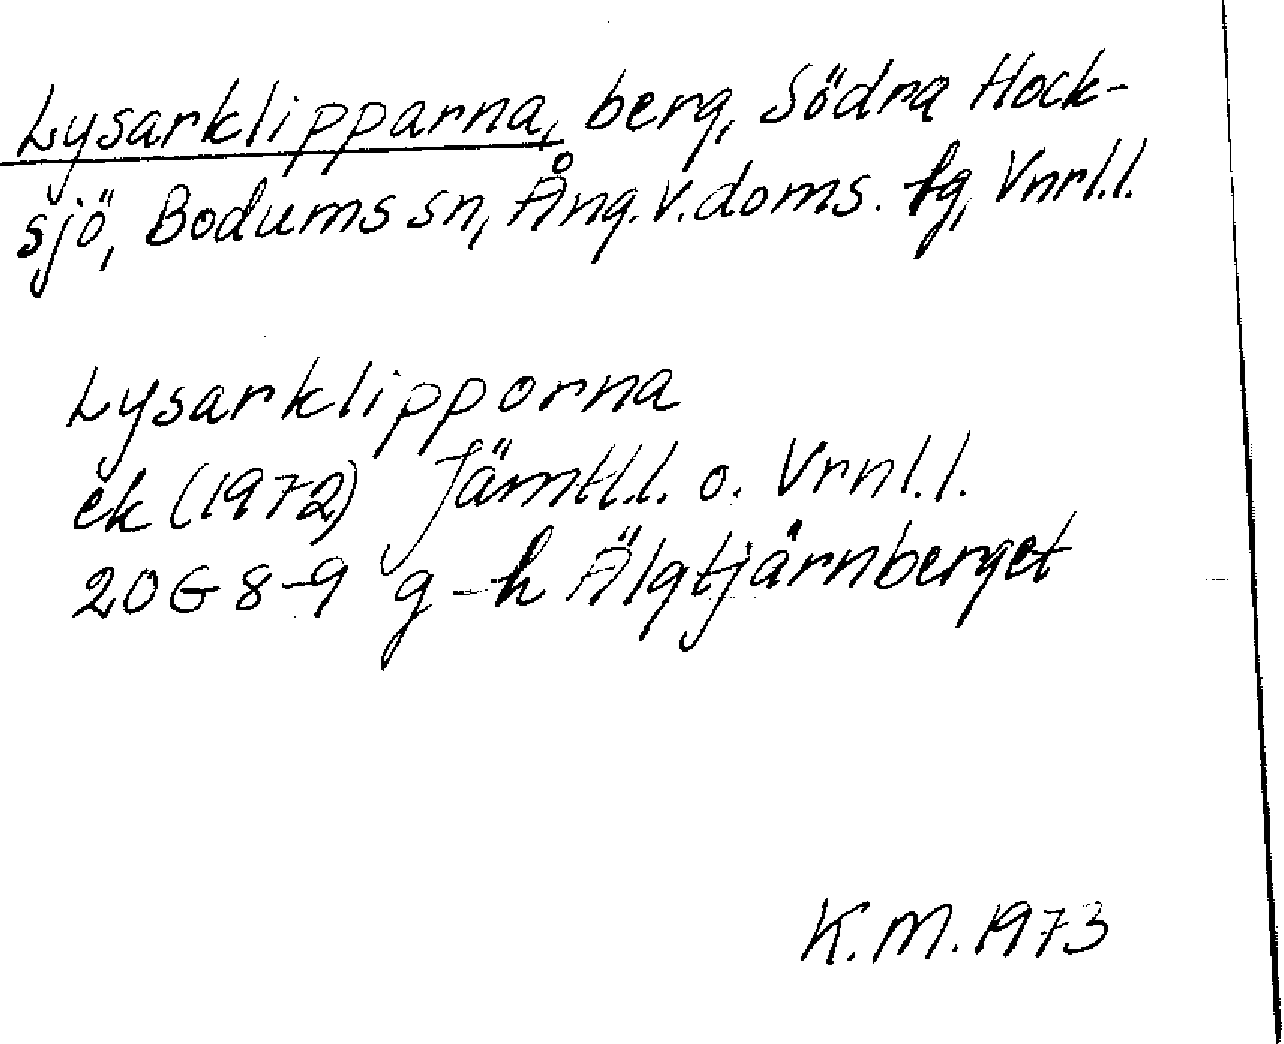 Lysarklipparna, berg, Södra Hock-
sjö, Bodums sn, Ång.v.doms. fg, Vnrl.l.
Lysarklipporna
ek (1972) Jämtl.l. o. Vrnl.l.
20G 8-9 g-h Älgtjärnberget
K.M. 1973